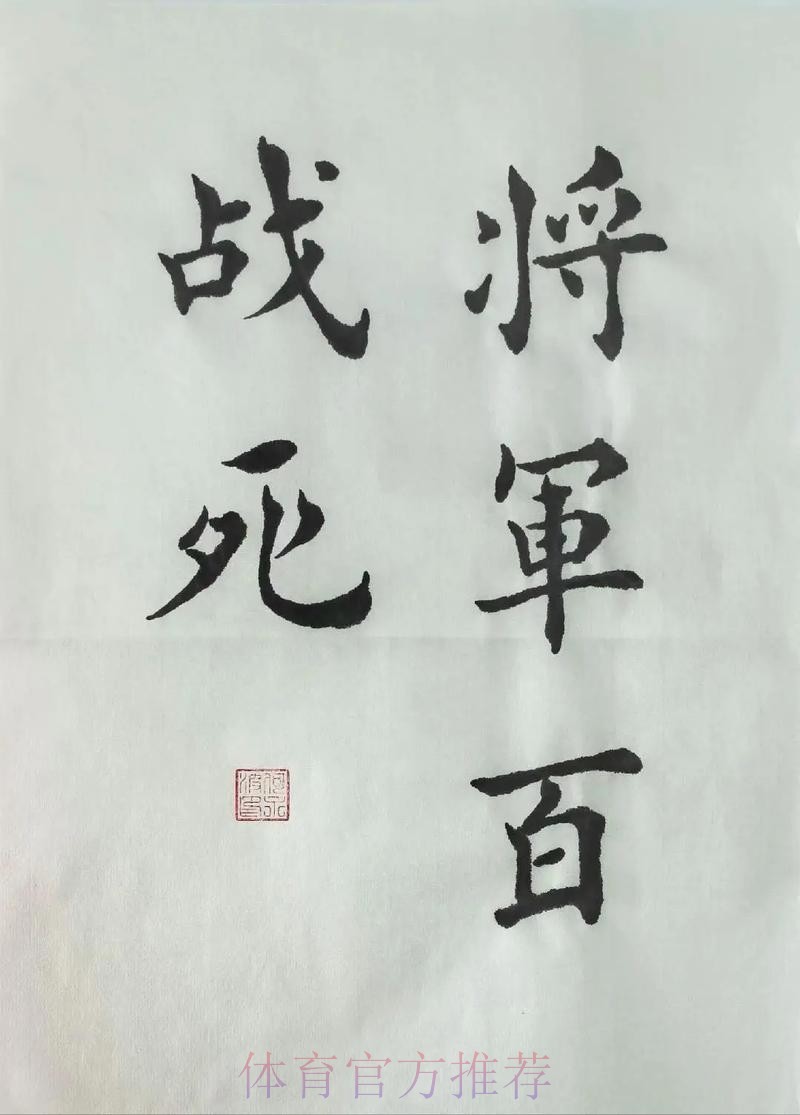 将軍百
战死
体育官方推荐